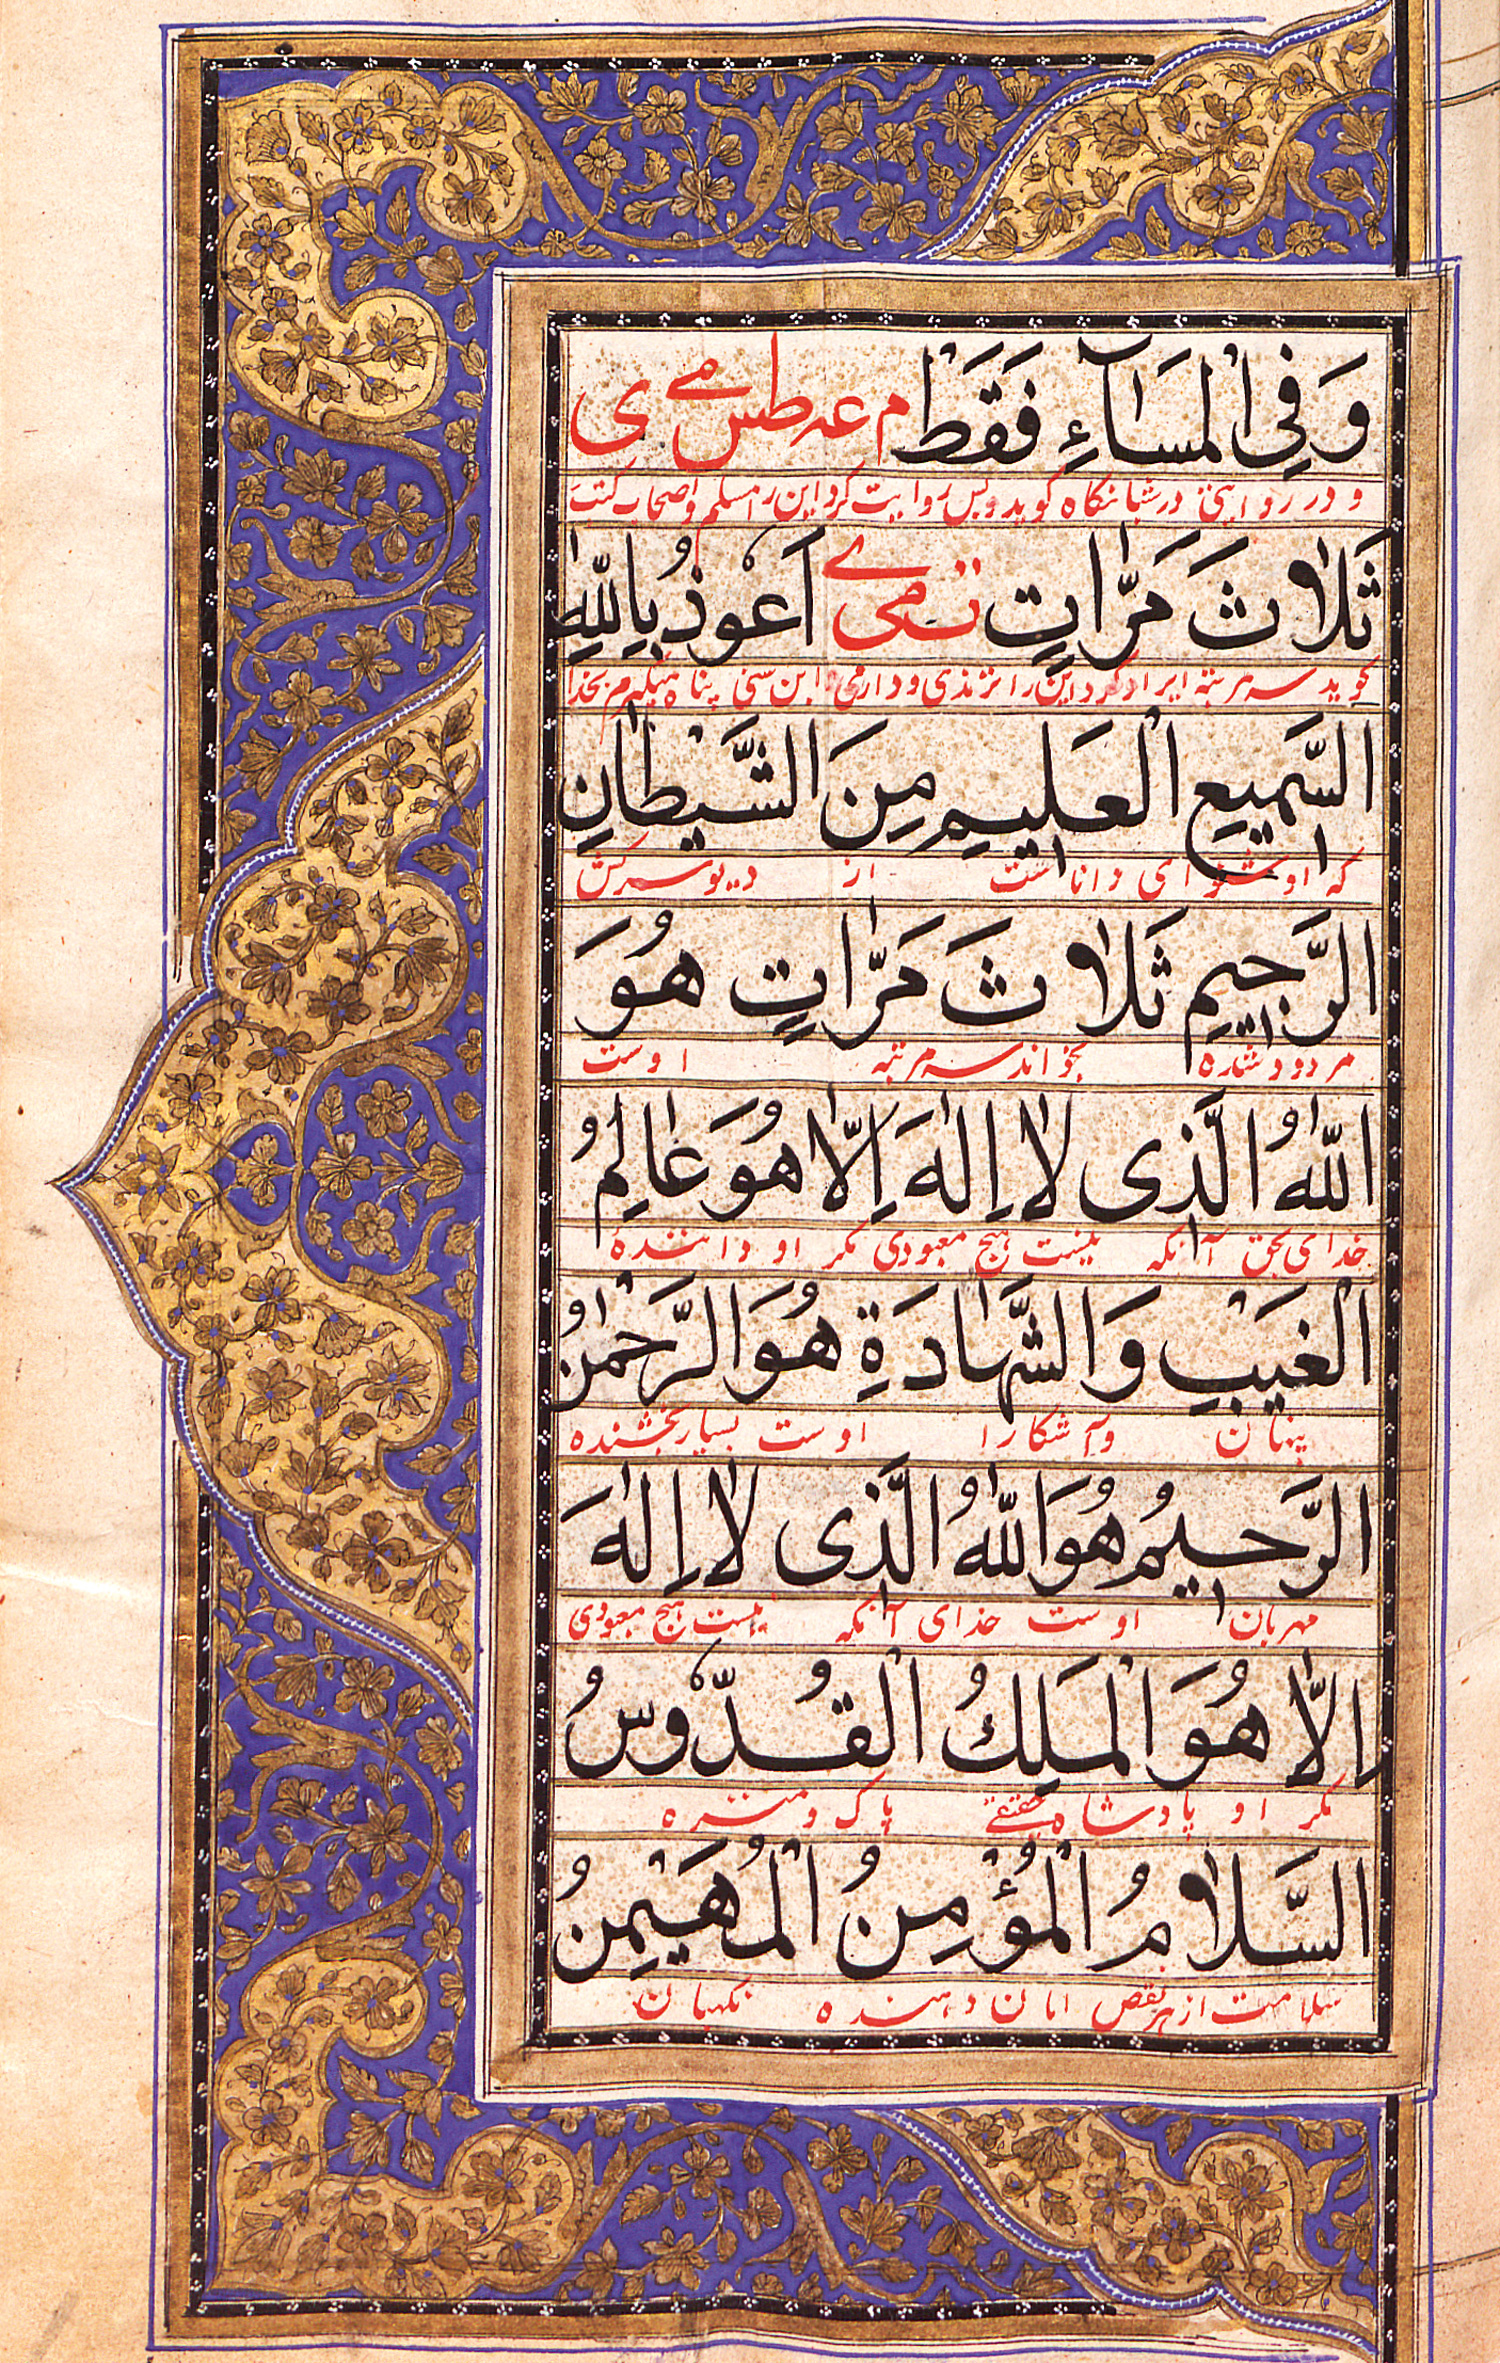 وَفِي الْمَسَآءِ فَقَطْ م عه طس مے ی
و در روایتی در شبانگاه گوید و بس روایت کرد این را مسلم و اصحاب کتب
ثَلَاثَ مَرَّاتٍ ت می ے اَعُوذُ بِاللّٰهِ
گوید سه مرتبه ایراد کرد این را ترمذی و دارمی و ابن سنی پناه میگیرم بخدا
السَّمِيعِ الْعَلِيمِ مِنَ الشَّيْطَانِ
که او شنوای دانا است از دیو سرکش
الرَّجِيمِ ثَلَاثَ مَرَّاتٍ هُوَ
مردود شده بخواند سه مرتبه اوست
اللّٰهُ الَّذِى لَا اِلٰهَ اِلَّا هُوَ عَالِمُ
خدای بحق آنکه نیست هیچ معبودی مگر او داننده
الْغَيْبِ وَالشَّهَادَةِ هُوَ الرَّحْمٰنُ
پنهان و آشکارا اوست بسیار بخشنده
الرَّحِيمُ هُوَ اللّٰهُ الَّذِى لَا اِلٰهَ
مهربان اوست خدای آنکه نیست هیچ معبودی
اِلَّا هُوَ الْمَلِكُ الْقُدُّوسُ
مگر او پادشاه حقیقے پاک و منزه
السَّلَامُ الْمُؤْمِنُ الْمُهَيْمِنُ
سلامت از هر نقص امان دهنده نگهبان